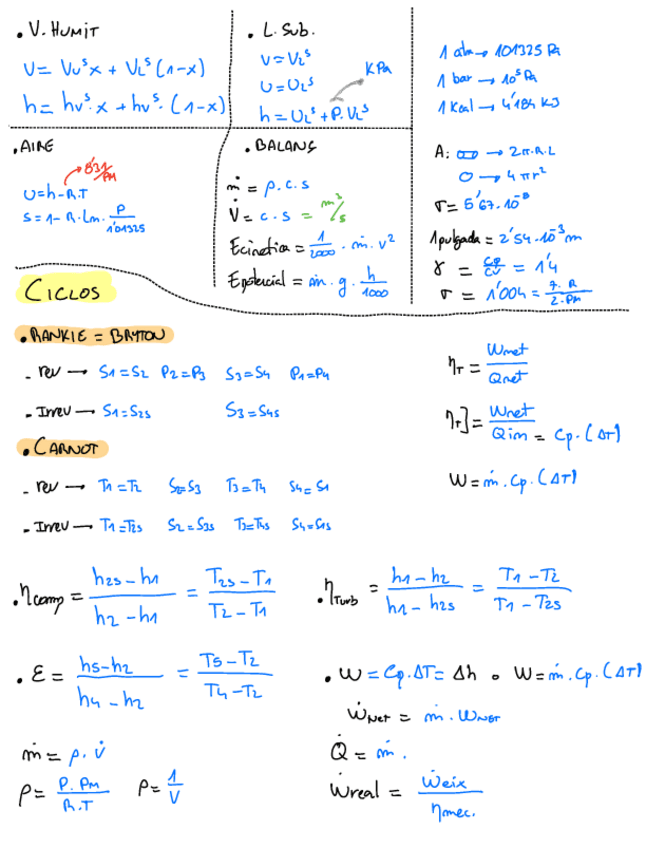 . V. HUMIT
U = Vv^s x + VL^s (1-x)
h = hv^s . x + hv^s . (1-x)
. L. SUB.
V = VL^s
U = UL^s
KPa
h = UL^s + P. VL^s
1 atm → 101325 Pa
1 bar → 10^5 Pa
1 Kcal → 4'184 KJ
. AIRE
8'31/PM
U = h - R.T
S = 1 - R. Lm. P/1'01325
. BALANÇ
ṁ = ρ. c. s
V̇ = c. s = m³/s
Ecinetica = 1/2000 . ṁ. v²
Epotencial = ṁ. g. h/1000
A: → 2π.R.L
→ 4πr²
σ = 5'67. 10^-8
1 pulgada = 2'54. 10^-3 m
γ = Cp/Cv = 1'4
σ = 1'004 = 7. R/2. PM
CICLOS
. RANKIE = BRYTON
- rev → S1=S2 P2=P3 S3=S4 P1=P4
- Irrev → S1=S2s S3=S4s
ηT = Wnet/Qnet
ηT] = Wnet/Qin = Cp. (ΔT)
W = ṁ. Cp. (ΔT)
. CARNOT
- rev → T1=T2 S2=S3 T3=T4 S4=S1
- Irrev → T1=T2s S2=S3s T3=T4s S4=S1s
. ηcomp = h2s - h1/h2 - h1 = T2s - T1/T2 - T1
. ηTurb = h1 - h2/h1 - h2s = T1 - T2/T1 - T2s
. ε = h5 - h2/h4 - h2 = T5 - T2/T4 - T2
. W = Cp. ΔT = Δh o W = ṁ. Cp. (ΔT)
ẆNet = ṁ. WNET
ṁ = ρ. V̇
Q̇ = ṁ.
ρ = P. PM/R.T ρ = 1/V
Ẇreal = Ẇeix/ηmec.